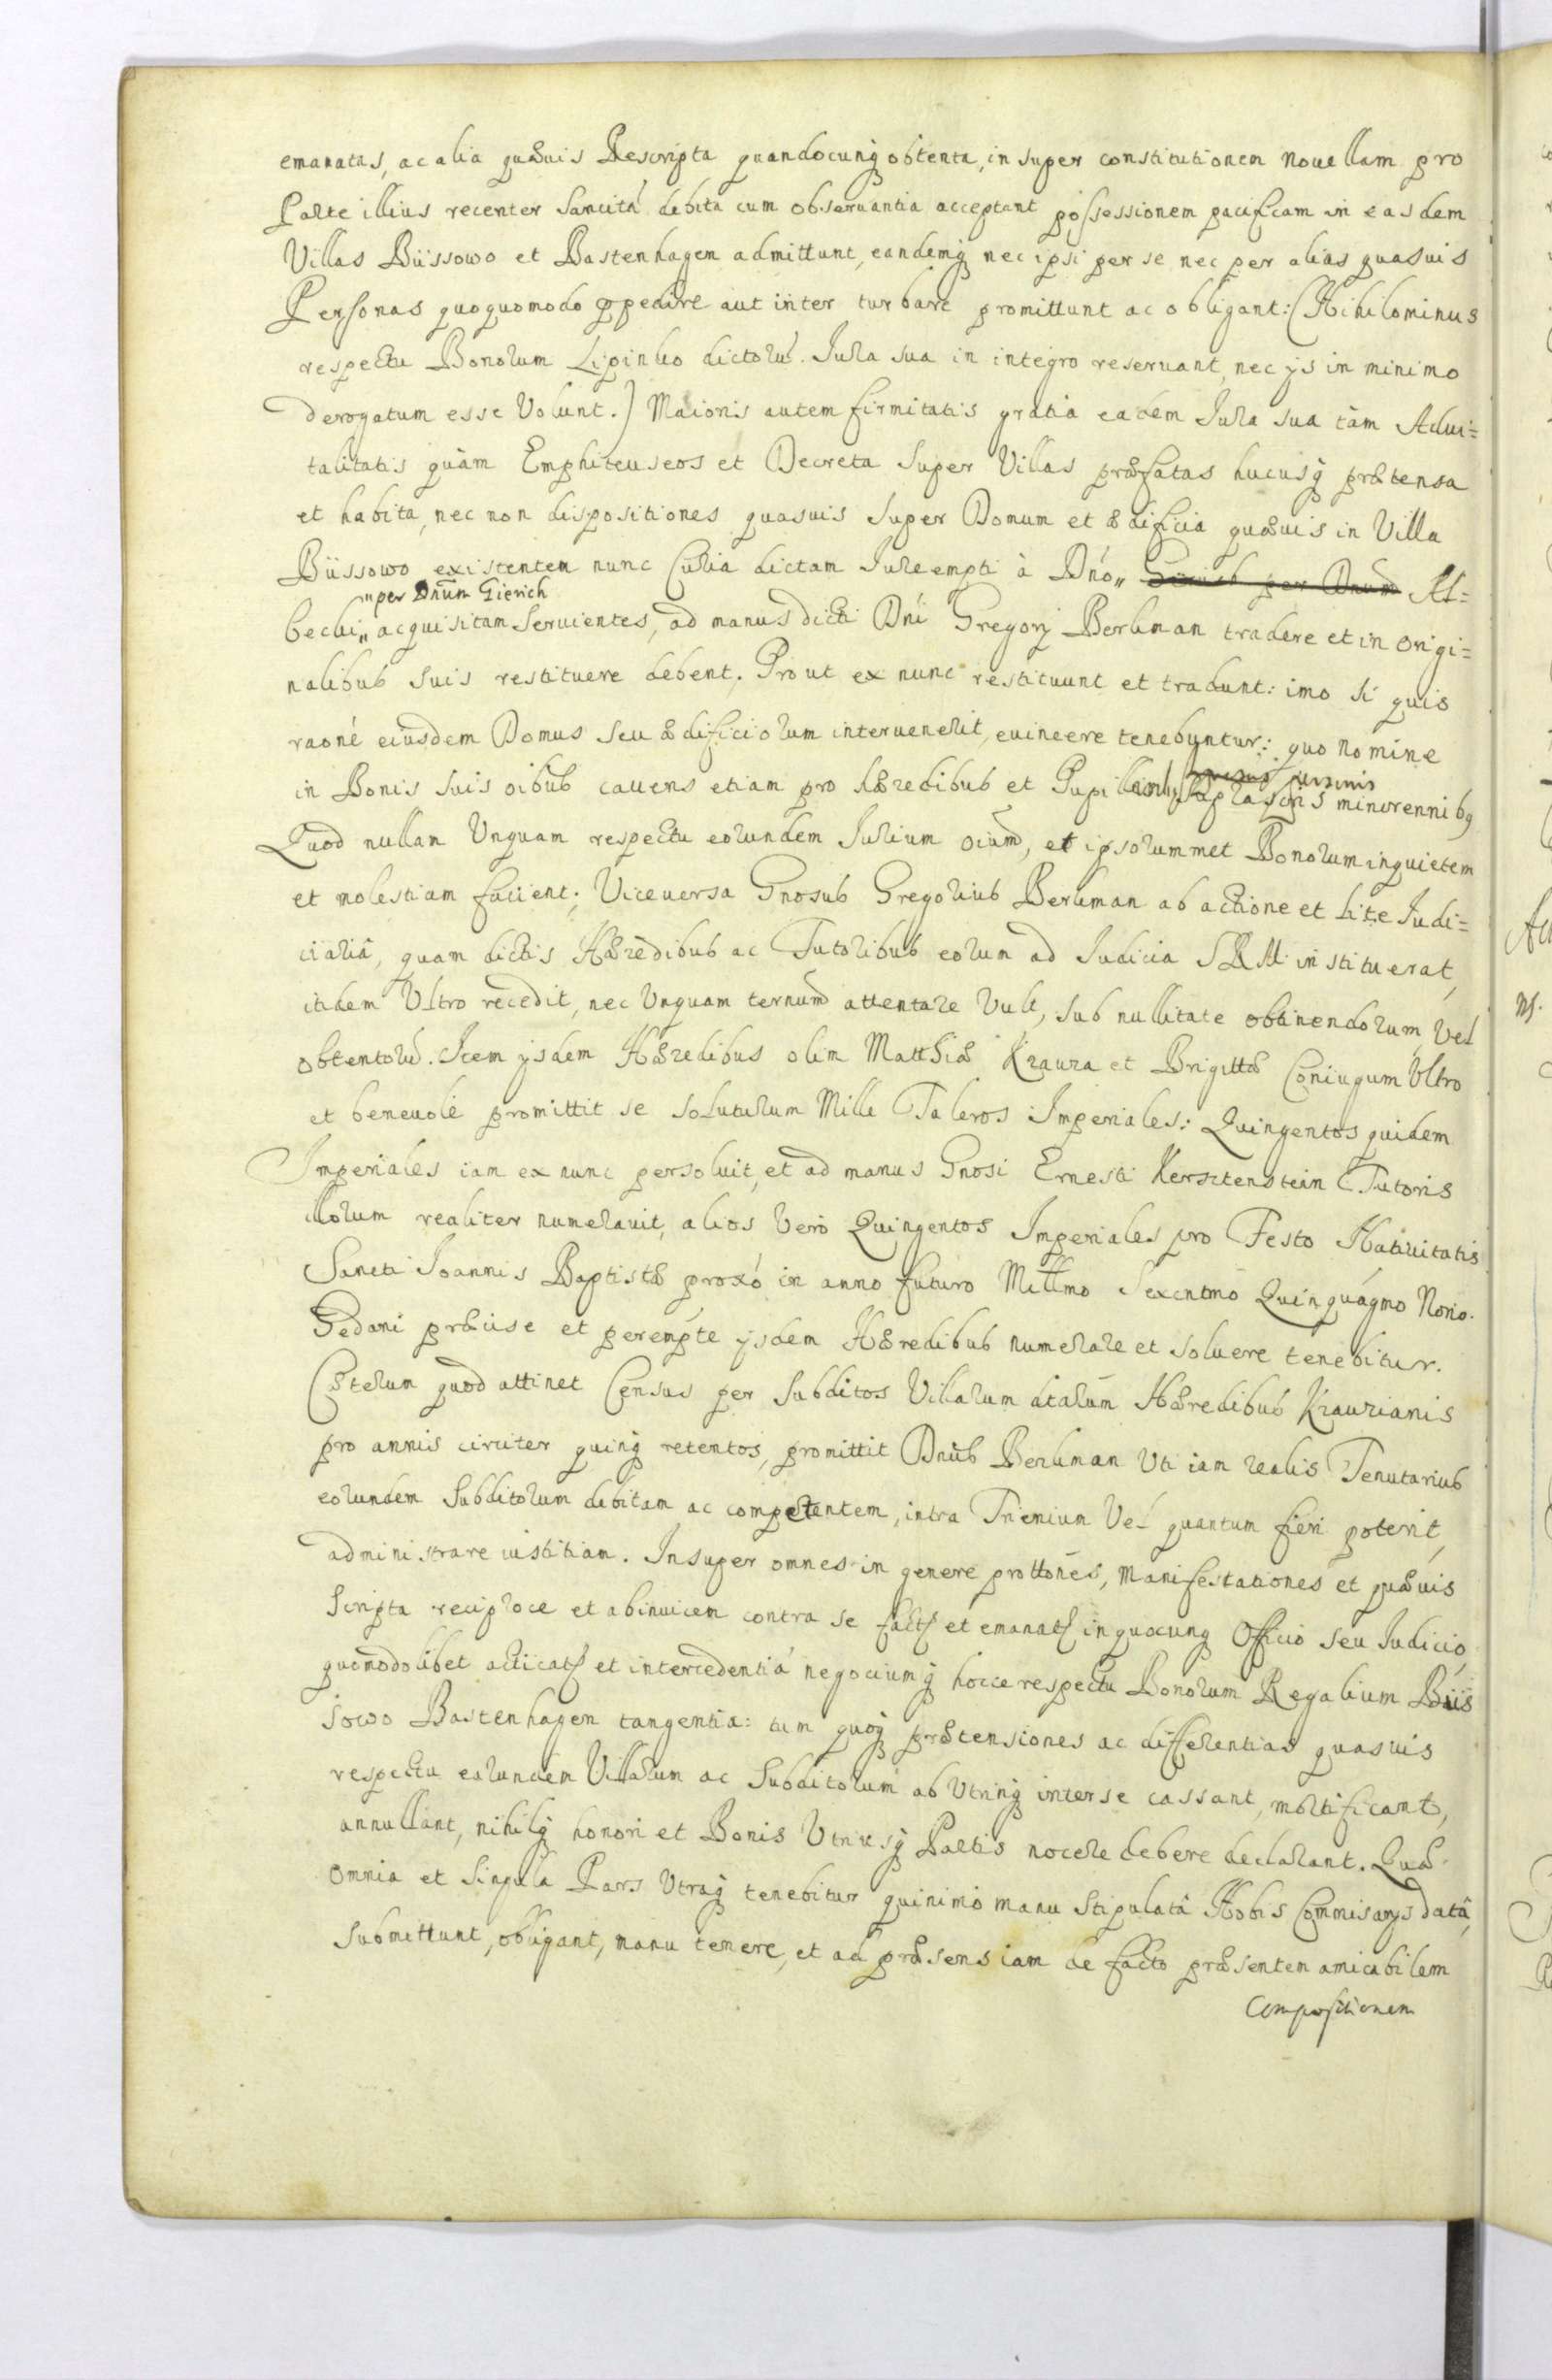 emanatas, ac alia quævis Rescripta quandocunq obtenta, in super constitutionem Novellam pro
Parte illius recenter sancitá debita cum observantia acceptant possessionem pacificam in easdem
Villas Büssowo et Bastenhagen admittunt, eandemq nec ipsi per se nec per alias quasuis
Personas quoquomodo impedire aut inter turbare promittunt ac obligant: (Nihilominus
respectu Bonorum Lipinko dictorũ. Jura sua in integro reservant, nec ijs in minimo
derogatum esse Volunt.) Maioris autem firmitatis gratia eadem Jura sua tàm Advi=
talitatis quàm Emphiteuseos et Decreta super Villas præfatas hucusq prætensa
et habita, nec non dispositiones quasuis super Domum et ædificia quævis in Villa
Büssowo existentem nunc Curia dictam Jure empti à Dńo„ Al=
„per Dnũm Gierich
becki„ acquisitam Servientes, ad manus dicti Dńi Gregorij Berkman tradere et in origi=
nalibus suis restituere debent. Prout ex nunc restituunt et tradunt: imo si quis
raoné eiusdem Domus seu ædificiorum intervenerit, evincere tenebuntur: quo nomine
in Bonis suis oibus cavens etiam pro hæredibus et Pupillis minorennibg
Quod nullam Unquam respectu eorundem Jurium oiũm, et ipsorummet Bonorum inquietem
et molestiam facient; Viceversa Gnosus Gregorius Berkman ab actione et lite Judi=
ciariâ, quam dictis Hæredibus ac Tutoribus eorum ad Judicia S R M instituerat,
itidem Ultro recedit, nec Unquam iternum attentare Vult, sub nullitate obtinendorum, Vel
obtentorũ. Item ijsdem Hæredibus olim Matthiæ Krauza et Brigittæ Coniugum Ultro
et benevolè promittit se soluturum Mille Taleros Imperiales: Quingentos quidem
Imperiales iam ex nunc persoluit, et ad manus Gnosi Ernesti Kersztenstein Tutoris
illorum realiter numeravit, alios Verò Quingentos Imperiales pro Festo Nativitatis
Sancti Joannis Baptistæ proxó in anno futuro Millmo Sexcntmo Quinquágmo Nono.
Gedani præcise et perempte ijsdem Hæredibus numerare et soluere tenebitur.
Cæterum quod attinet Census per Subditos Villarum dtarũm Hæredibus Krauzianis
pro annis circiter quinq retentos, promittit Dnũs Berkman Uti iam realis Tenutarius
eorundem Subditorum debitam ac competentem, intra Trienium Vel quantum fieri poterit,
administrare iustitiam. Insuper omnes in genere prottones, Manifestationes et quævis
Scripta reciproce et abinvicem contra se facta et emanata in quocunq Officio seu Judicio
quomodolibet acticata et intercedentia negociumq hocce respectu Bonorum Regalium Büs
sowo Bastenhagen tangentia: tum quoq prætensiones ac differentias quasvis
respectu earundem Villarum ac Subditorum ab Utrinq inter se cassant, mortificant,
annullant, nihilq honori et Bonis Utriusq Partis nocere debere declarant. Quæ
omnia et Singula Pars Utraq tenebitur quinimo manu stipulatâ Nobis Commisarys datâ,
submittunt, obligant, manu tenere, et ad præsens iam de facto præsentem amicabilem
Compositionem